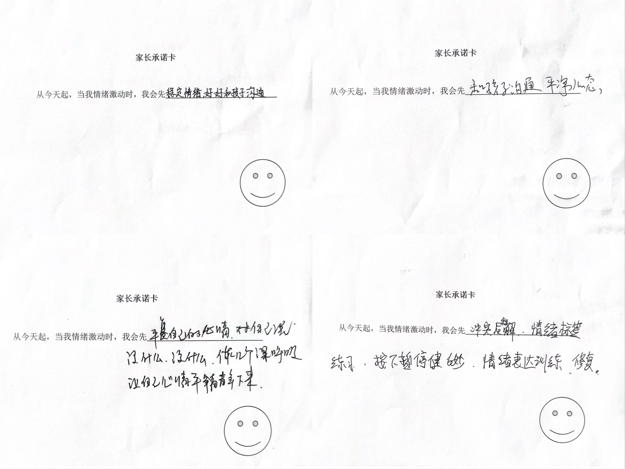 家长承诺卡
从今天起,当我情绪激动时,我会先稳定情绪,好好和孩子沟通
家长承诺卡
从今天起,当我情绪激动时,我会先和孩子沟通 平净心态,
家长承诺卡
从今天起,当我情绪激动时,我会先平复自己的心情,对自己说
没什么、没什么、做几个深呼吸
让自己心情平静下来.
家长承诺卡
从今天起,当我情绪激动时,我会先冲突反解、情绪标签
练习、按下暂停键 、情绪表达训练、修复。